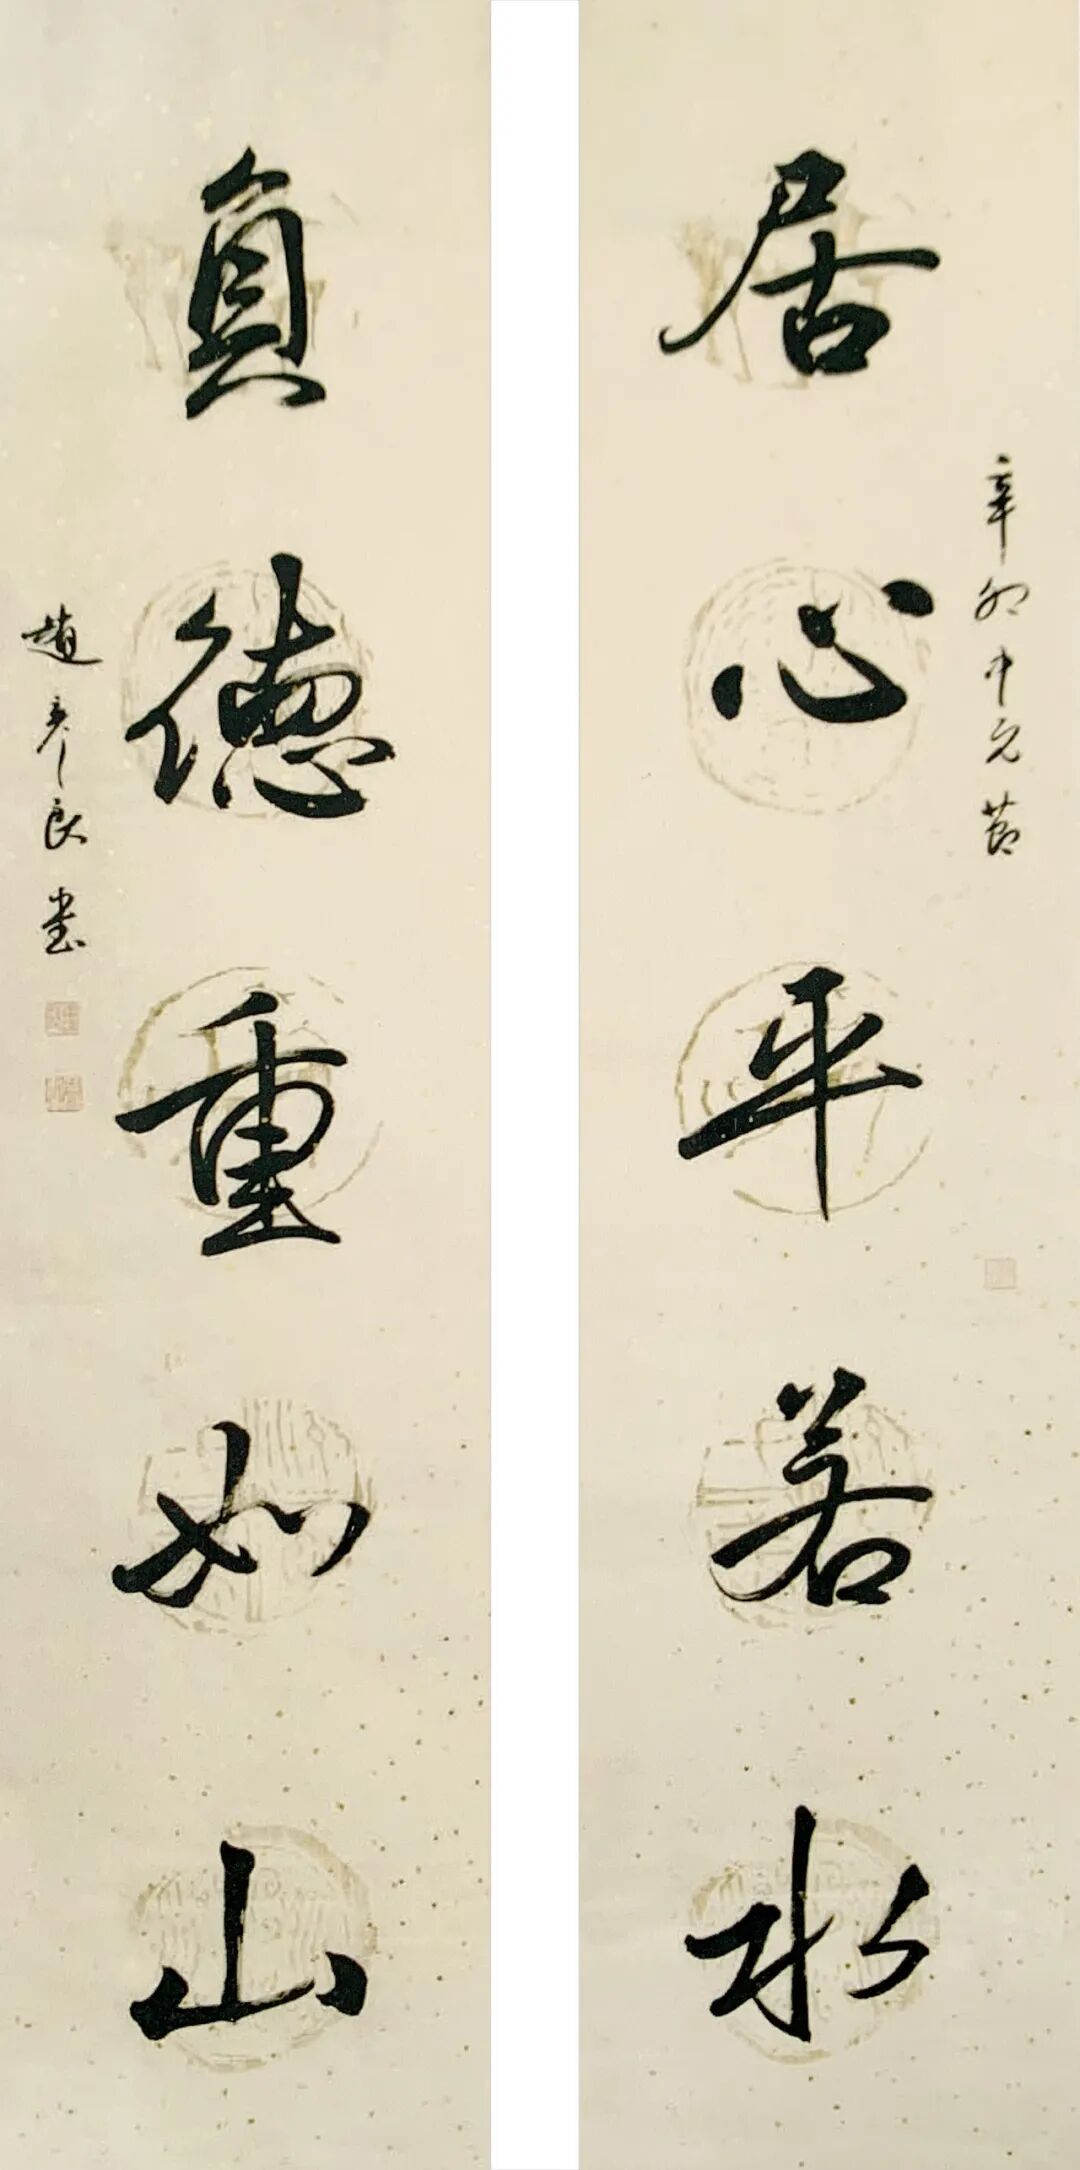 居心平若水
辛卯中元節
負德重如山
趙彥良書